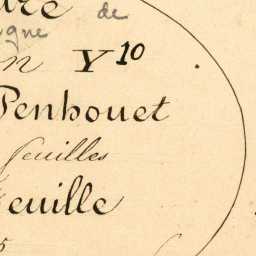 ure de
gne
n Y¹⁰
Penhouet
feuilles
euille
5